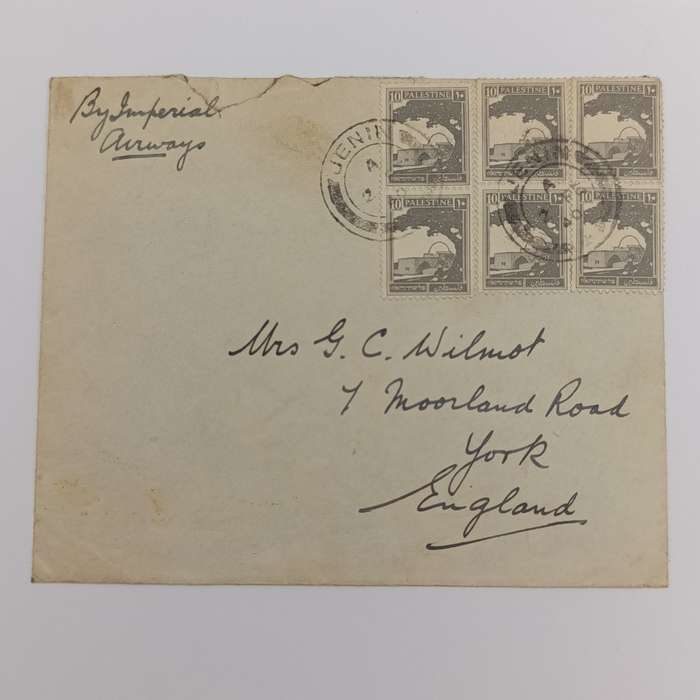 By Imperial
Airways
10 PALESTINE ١٠
10 PALESTINE ١٠
10 PALESTINE ١٠
JENIN
JENIN
10 PALESTINE ١٠
10 PALESTINE ١٠
10 PALESTINE ١٠
فلسطين
فلسطين
فلسطين
Mrs G. C. Wilmot
7 Moorland Road
York
England